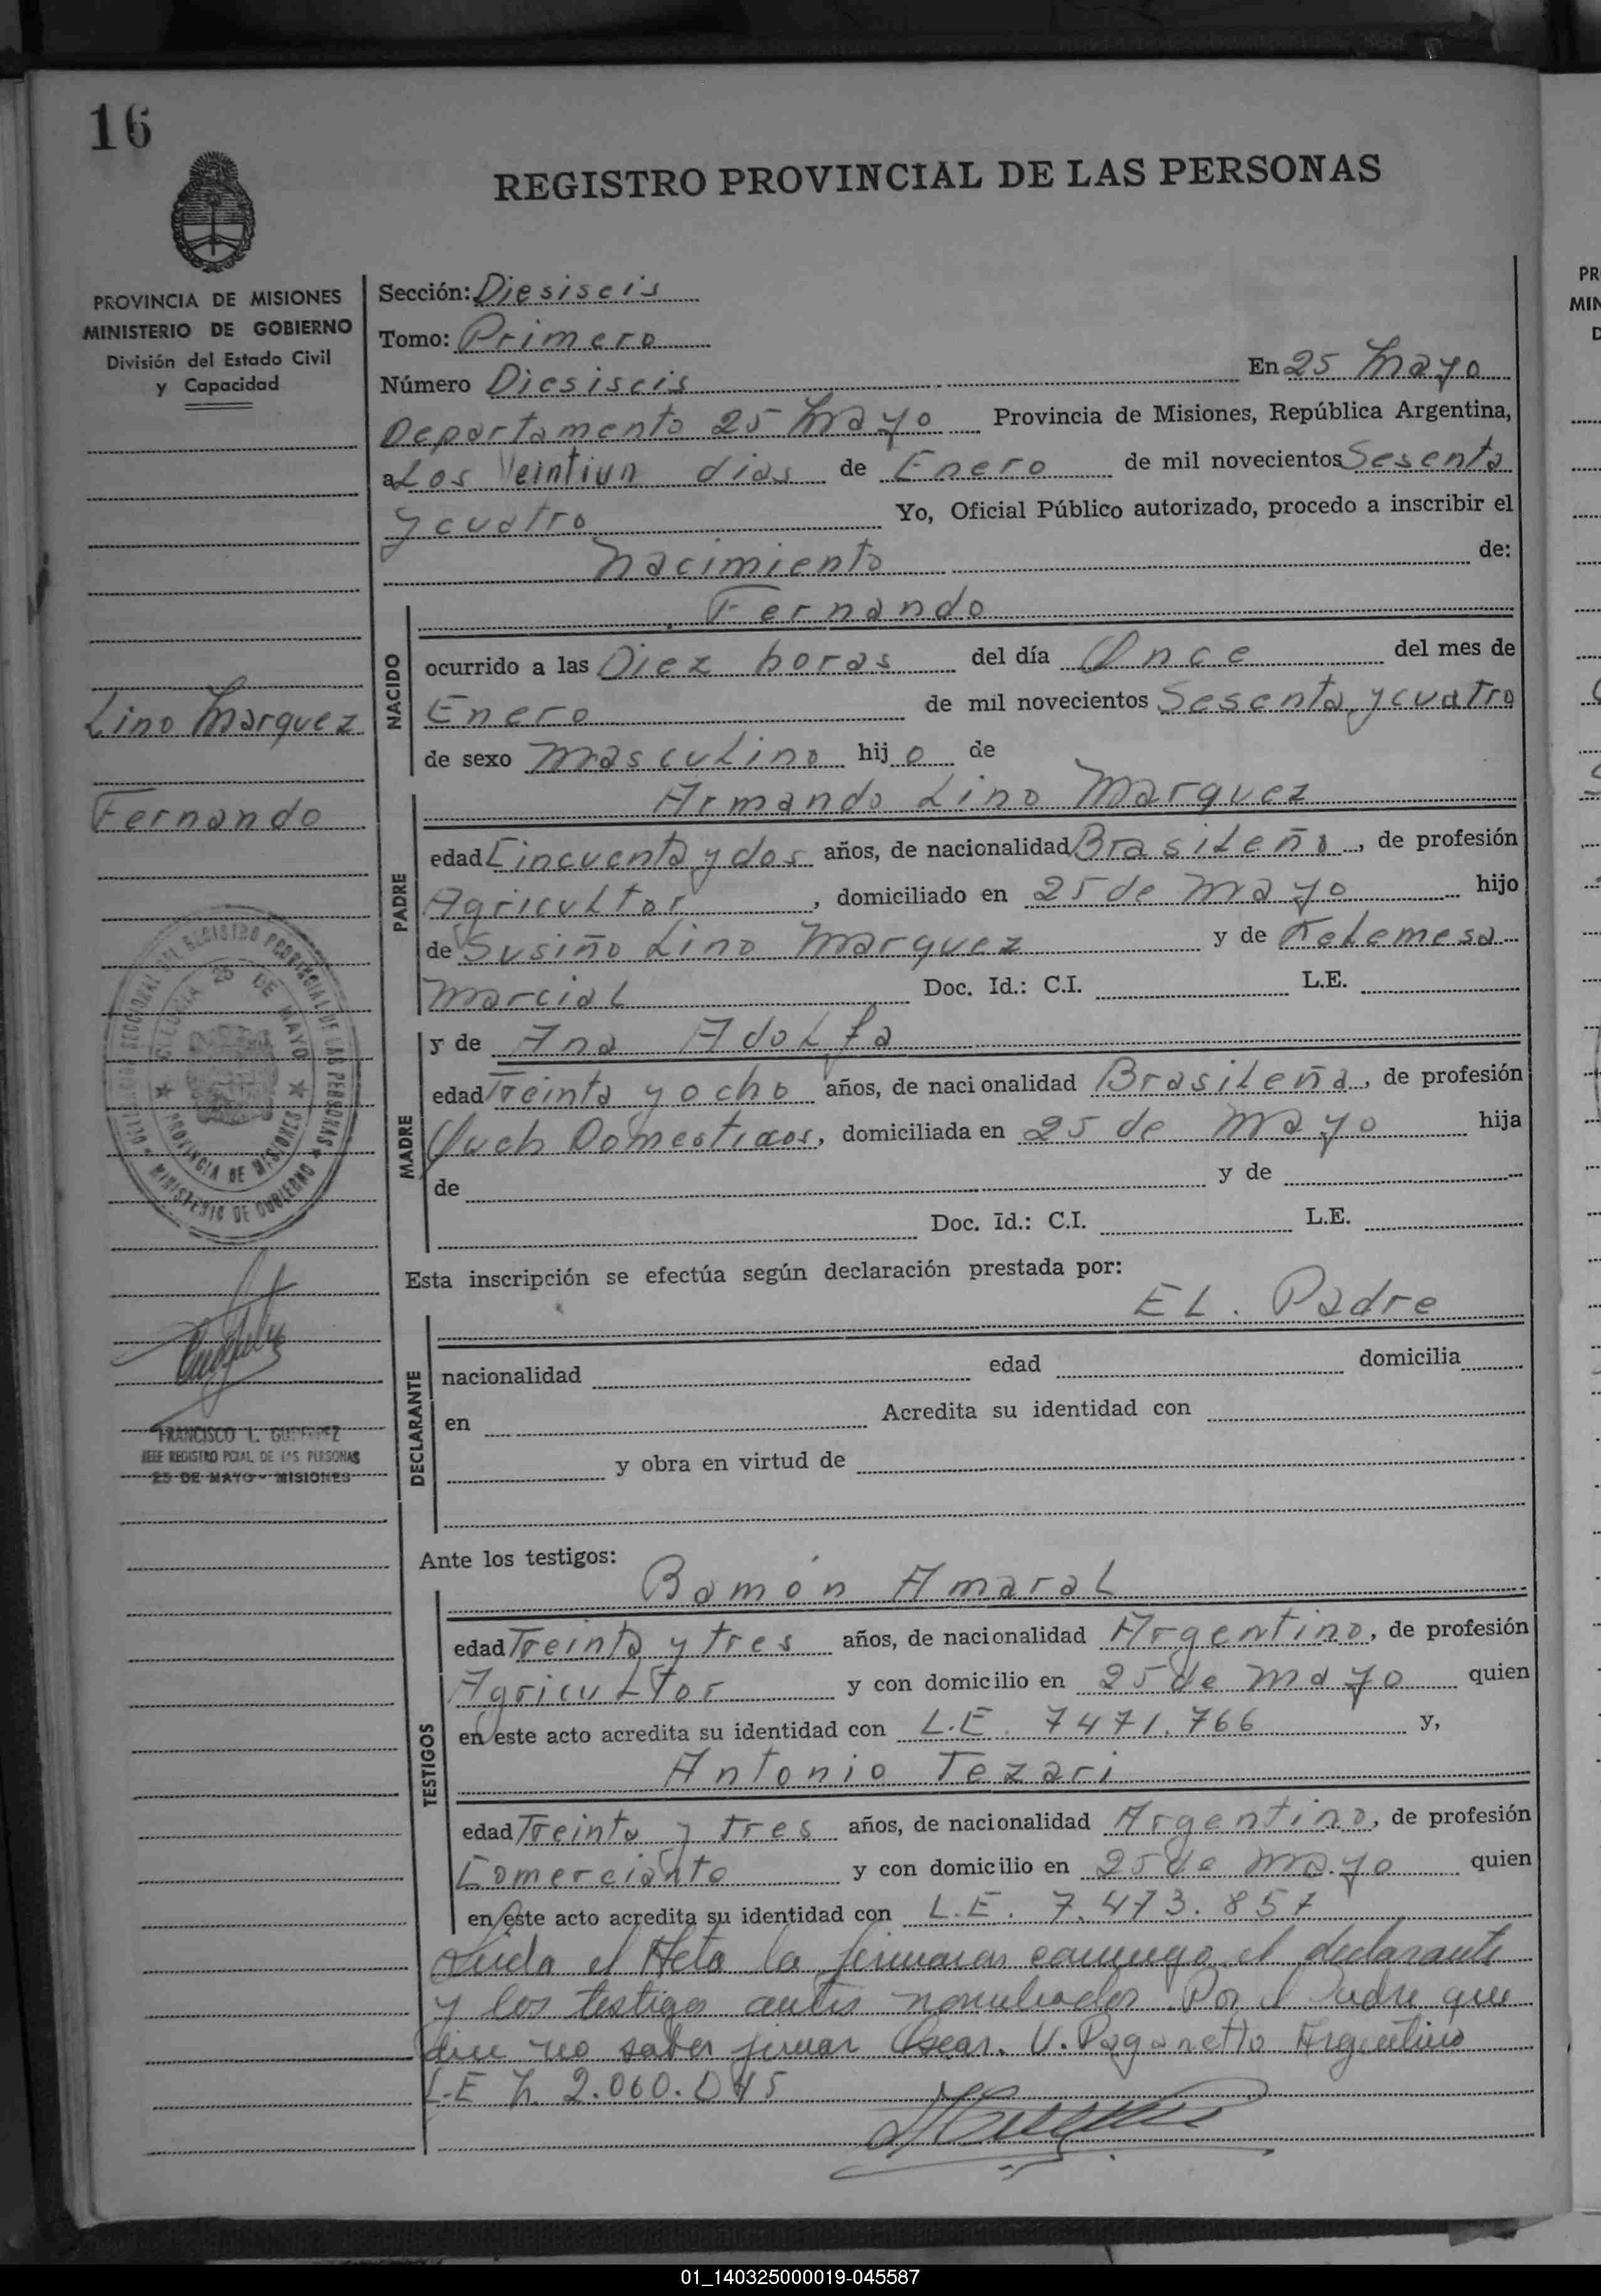 16
REGISTRO PROVINCIAL DE LAS PERSONAS
PROVINCIA DE MISIONES
MINISTERIO DE GOBIERNO
División del Estado Civil
y Capacidad
Lino Marquez
Fernando
COLONIA 25 DE MAYO
PROVINCIA DE MISIONES
MINISTERIO DE GOBIERNO
FRANCISCO L. GUTIERREZ
JEFE REGISTRO PCIAL DE LAS PERSONAS
25 DE MAYO - MISIONES
Sección: Diesiseis
Tomo: Primero
Número Diesiseis En 25 Mayo
Departamento 25 Mayo Provincia de Misiones, República Argentina,
a Los Veintiun dias de Enero de mil novecientos Sesenta
y cuatro Yo, Oficial Público autorizado, procedo a inscribir el
Nacimiento de:
NACIDO
Fernando
ocurrido a las Diez horas del día Once del mes de
Enero de mil novecientos Sesenta y cuatro
de sexo Masculino hij o de
PADRE
Armando Lino Marquez
edad Cincuenta y dos años, de nacionalidad Brasileño, de profesión
Agricultor, domiciliado en 25 de Mayo hijo
de Susiño Lino Marquez y de Kelemesa
Marcial Doc. Id.: C.I. L.E.
MADRE
y de Ana Adolfa
edad Treinta y ocho años, de nacionalidad Brasileña, de profesión
Domesticos, domiciliada en 25 de Mayo hija
de y de
Doc. Id.: C.I. L.E.
Esta inscripción se efectúa según declaración prestada por:
DECLARANTE
EL. Padre
nacionalidad edad domicilia
en Acredita su identidad con
y obra en virtud de
Ante los testigos:
TESTIGOS
Ramón Amaral
edad Treinta y tres años, de nacionalidad Argentino, de profesión
Agricultor y con domicilio en 25 de Mayo quien
en este acto acredita su identidad con L.E. 7471.766 y,
Antonio Tezari
edad Treinta y tres años, de nacionalidad Argentino, de profesión
Comerciante y con domicilio en 25 de Mayo quien
en este acto acredita su identidad con L.E. 7.473.857
Leida el Acta la firmaron conmigo el declarante
y los testigos antes nombrados. Por el Padre que
dice no saber firmar Oscar. V. Paganetto Argentino
L.E N. 2.060.045
01_140325000019-045587